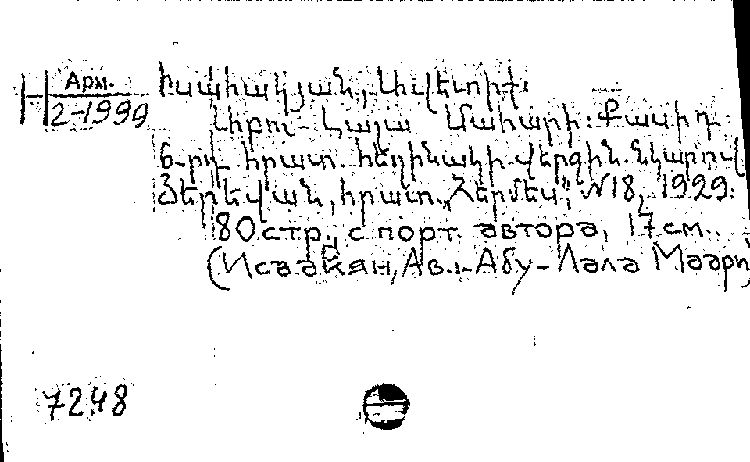 Арм.
2-1999
Իսահակյան, Ավետիք։
Աբու-Լալա Մահարի։ Քասիդ
6-րդ հրատ. հեղինակի վերջին նկարով
Յերևան, հրատ. „Հերմես“, №18, 1929.
80 стр., с порт. автора, 17 см.
(Исаакян, Ав. - Абу-Лала Маари)
7248